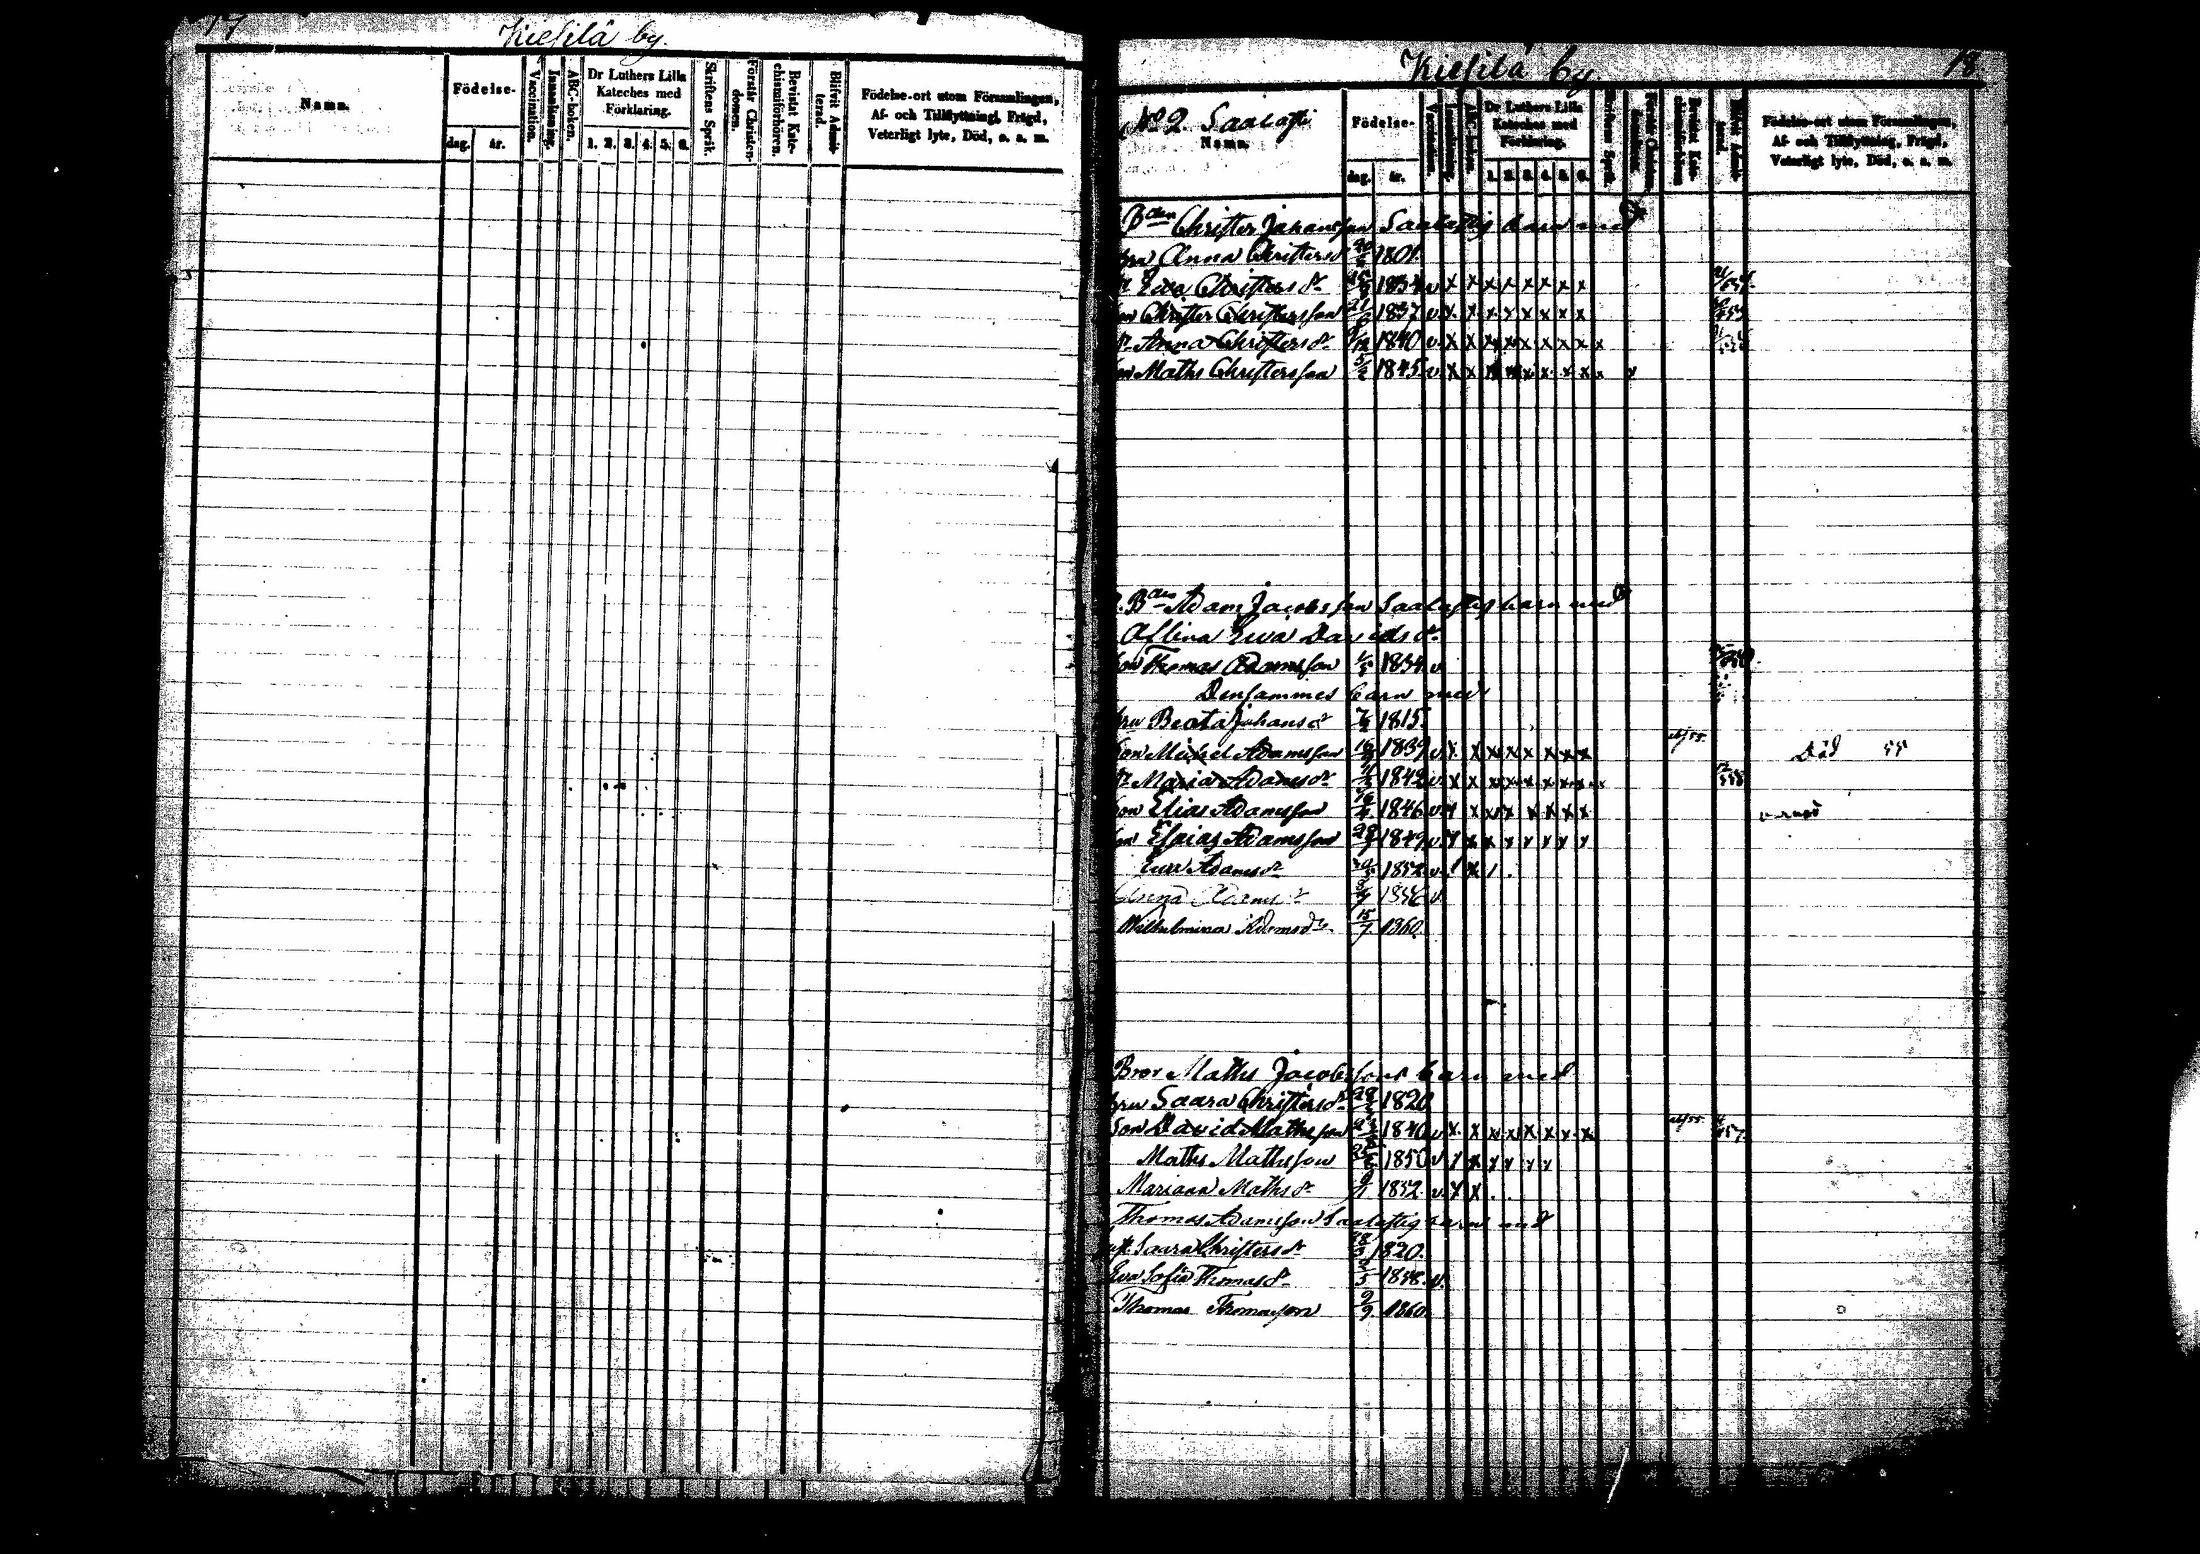 17
Kiesilä by.
Namn.
Födelse-
dag. år.
Vaccination.
Innanläsning.
ABC-boken.
Dr Luthers Lilla Kateches med Förklaring.
1. 2. 3. 4. 5. 6.
Skriftens Språk.
Förstår Christendomen.
Bevistat Katechismiförhören.
Blifvit Admitterad.
Födelse-ort utom Församlingen,
Af- och Tillflyttning, Frägd,
Veterligt lyte, Död, o. s. m.
Kiesilä by.
18
No 2. Saalasti
Namn.
Födelse-
dag. år.
Vaccination.
Innanläsning.
ABC-boken.
Dr Luthers Lilla Kateches med Förklaring.
1. 2. 3. 4. 5. 6.
Skriftens Språk.
Förstår Christendomen.
Bevistat Katechismiförhören.
Blifvit Admitterad.
Födelse-ort utom Församlingen,
Af- och Tillflyttning, Frägd,
Veterligt lyte, Död, o. s. m.
Bden Christer Johansson Saalastis barn med
hru Anna Christersdr 1801.
dr Ewa Christersdr 1834 v x x x x x x x x
son Christer Christersson 1837 v x x x x x x x x
dr Anna Christersdr 9/12 1840 v x x x x x x x x x
son Maths Christersson 5/2 1845 v x x x x x x x x x x
Bden Adam Jacobsson Saalastis barn med
Aflidna Ewa Davidsdr
son Thomas Adamsson 1/5 1834 v
Densammes barn med
hru Beata Johansdr 1815
son Michel Adamsson 1839 v x x x x x x x x Död 55
dr Maria Adamsdr 1842 v x x x x x x x x x
son Elias Adamsson 1846 v x x x x x x x x
son Esaias Adamsson 1849 v x x x x x x x x
Ewa Adamsdr 1852 v / x /
Anna Adamsdr 1856 v
Wilhelmina Adamsdr 15/7 1860
Bror Maths Jacobssons barn med
hru Saara Christersdr 1820
son David Mathsson 1840 v x x x x x x x x
Maths Mathsson 1850 v x x x x x x
Mariana Mathsdr 1852 v x x
Thomas Adamsson Saalastis barn med
Saara Christersdr 1820.
Eva Sofia Thomasdr 1858. v.
Thomas Thomasson 9/9 1860